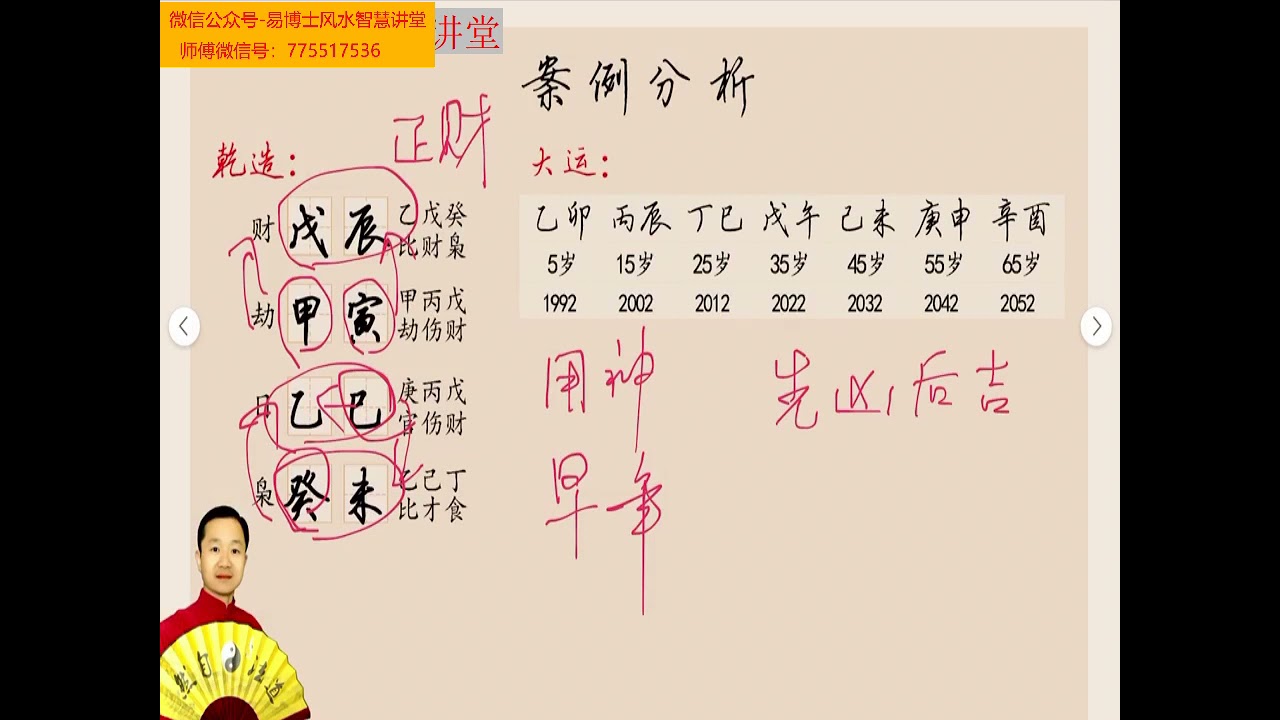 微信公众号-易博士风水智慧讲堂
师傅微信号：775517536
讲堂
案例分析
正财
乾造：
财 戊 辰 乙戊癸
比财枭
劫 甲 寅 甲丙戊
劫伤财
日 乙 巳 庚丙戊
官伤财
枭 癸 未 乙己丁
比才食
大运：
乙卯 丙辰 丁巳 戊午 己未 庚申 辛酉
5岁 15岁 25岁 35岁 45岁 55岁 65岁
1992 2002 2012 2022 2032 2042 2052
用神 先凶后吉
早年
然自法道